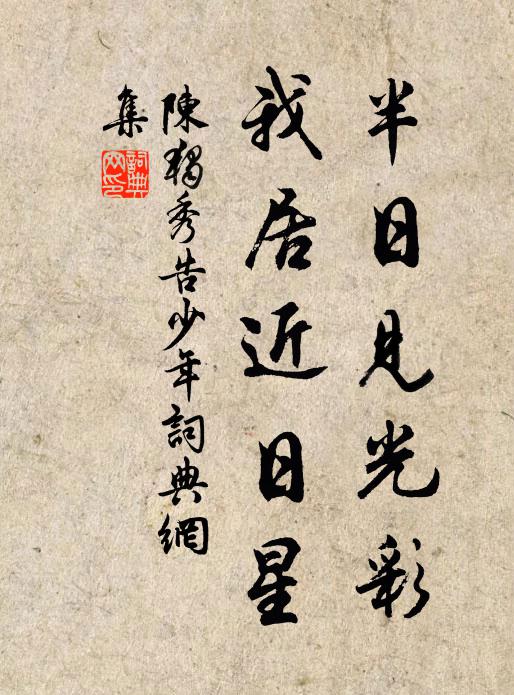 半日見光彩
我居近日星
陳獨秀告少年詞典網
集
詞典
网印